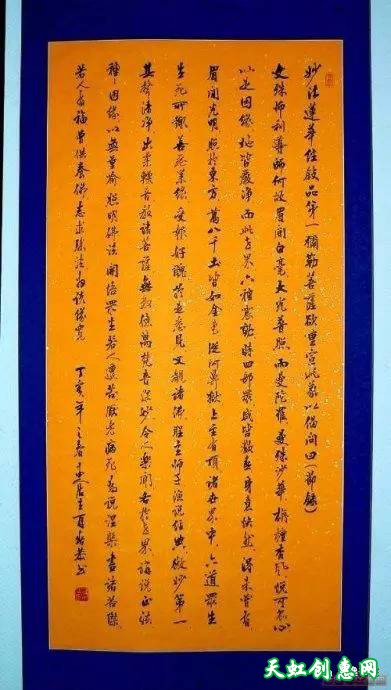 妙法蓮華經敘品第一彌勒菩薩欲重宣此義以偈問曰(節錄)
文殊師利導師何故眉間白毫大光普照雨曼陀羅曼殊沙華栴檀香風悅可眾心
以是因緣地皆嚴淨而此世界六種震動時四部眾咸皆歡喜身意快然得未曾有
眉間光明照於東方萬八千土皆如金色從阿鼻獄上至有頂諸世界中六道眾生
生死所趣善惡業緣受報好醜於此悉見又覩諸佛聖主師子演說經典微妙第一
其聲清淨出柔軟音教諸菩薩無數億萬梵音深妙令人樂聞各於世界講說正法
種種因緣以無量喻照明佛法開悟眾生若人遭苦厭老病死為說涅槃盡諸苦際
若人有福曾供養佛志求勝法為說緣覺 丁亥年之春 居士 恭書
天虹创惠网